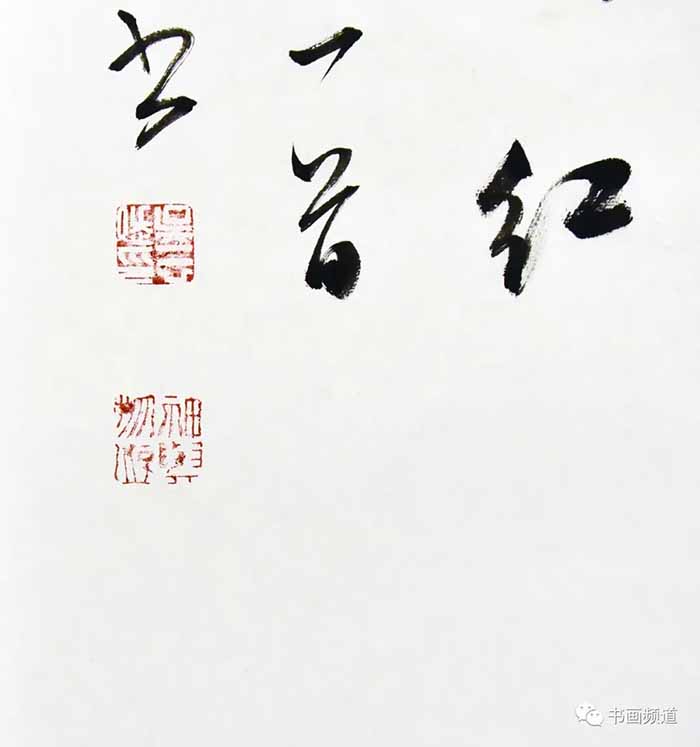 红
一首
书
神与物游
书画频道